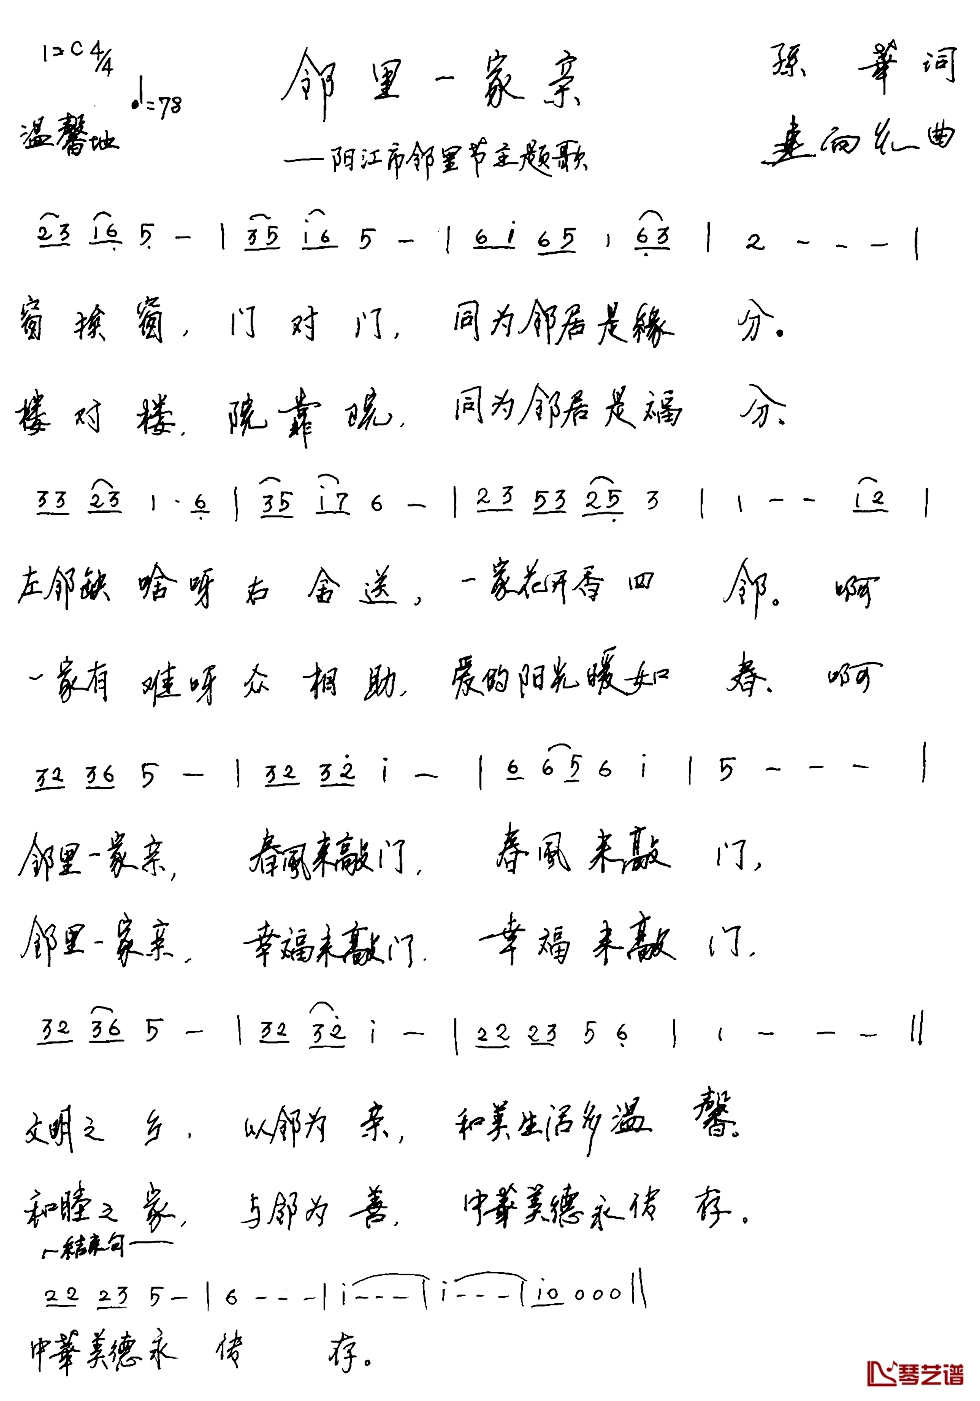 1=C 4/4
♩=78
温馨地
邻里一家亲
——阳江市邻里节主题歌
孫 華 词
向 曲
23 i6 5 - | 35 i6 5 - | 6i 65 1 63 | 2 - - - |
窗挨窗,门对门,同为邻居是缘分。
楼对楼,院靠院,同为邻居是福分。
33 23 1 · 6 | 35 i7 6 - | 23 53 25 3 | 1 - - i2 |
左邻缺啥呀右舍送,一家花开香四邻。啊
一家有难呀众相助,爱的阳光暖如春。啊
32 36 5 - | 32 32 i - | 6 65 6 i | 5 - - - |
邻里一家亲,春風来敲门,春風来敲门,
邻里一家亲,幸福来敲门,幸福来敲门,
32 36 5 - | 32 32 i - | 22 23 5 6 | 1 - - - ||
文明之乡,以邻为亲,和美生活多温馨。
和睦之家,与邻为善,中華美德永传存。
结束句
22 23 5 - | 6 - - - | i - - - | i - - - | i0 0 0 0 ||
中華美德永传存。
琴艺谱